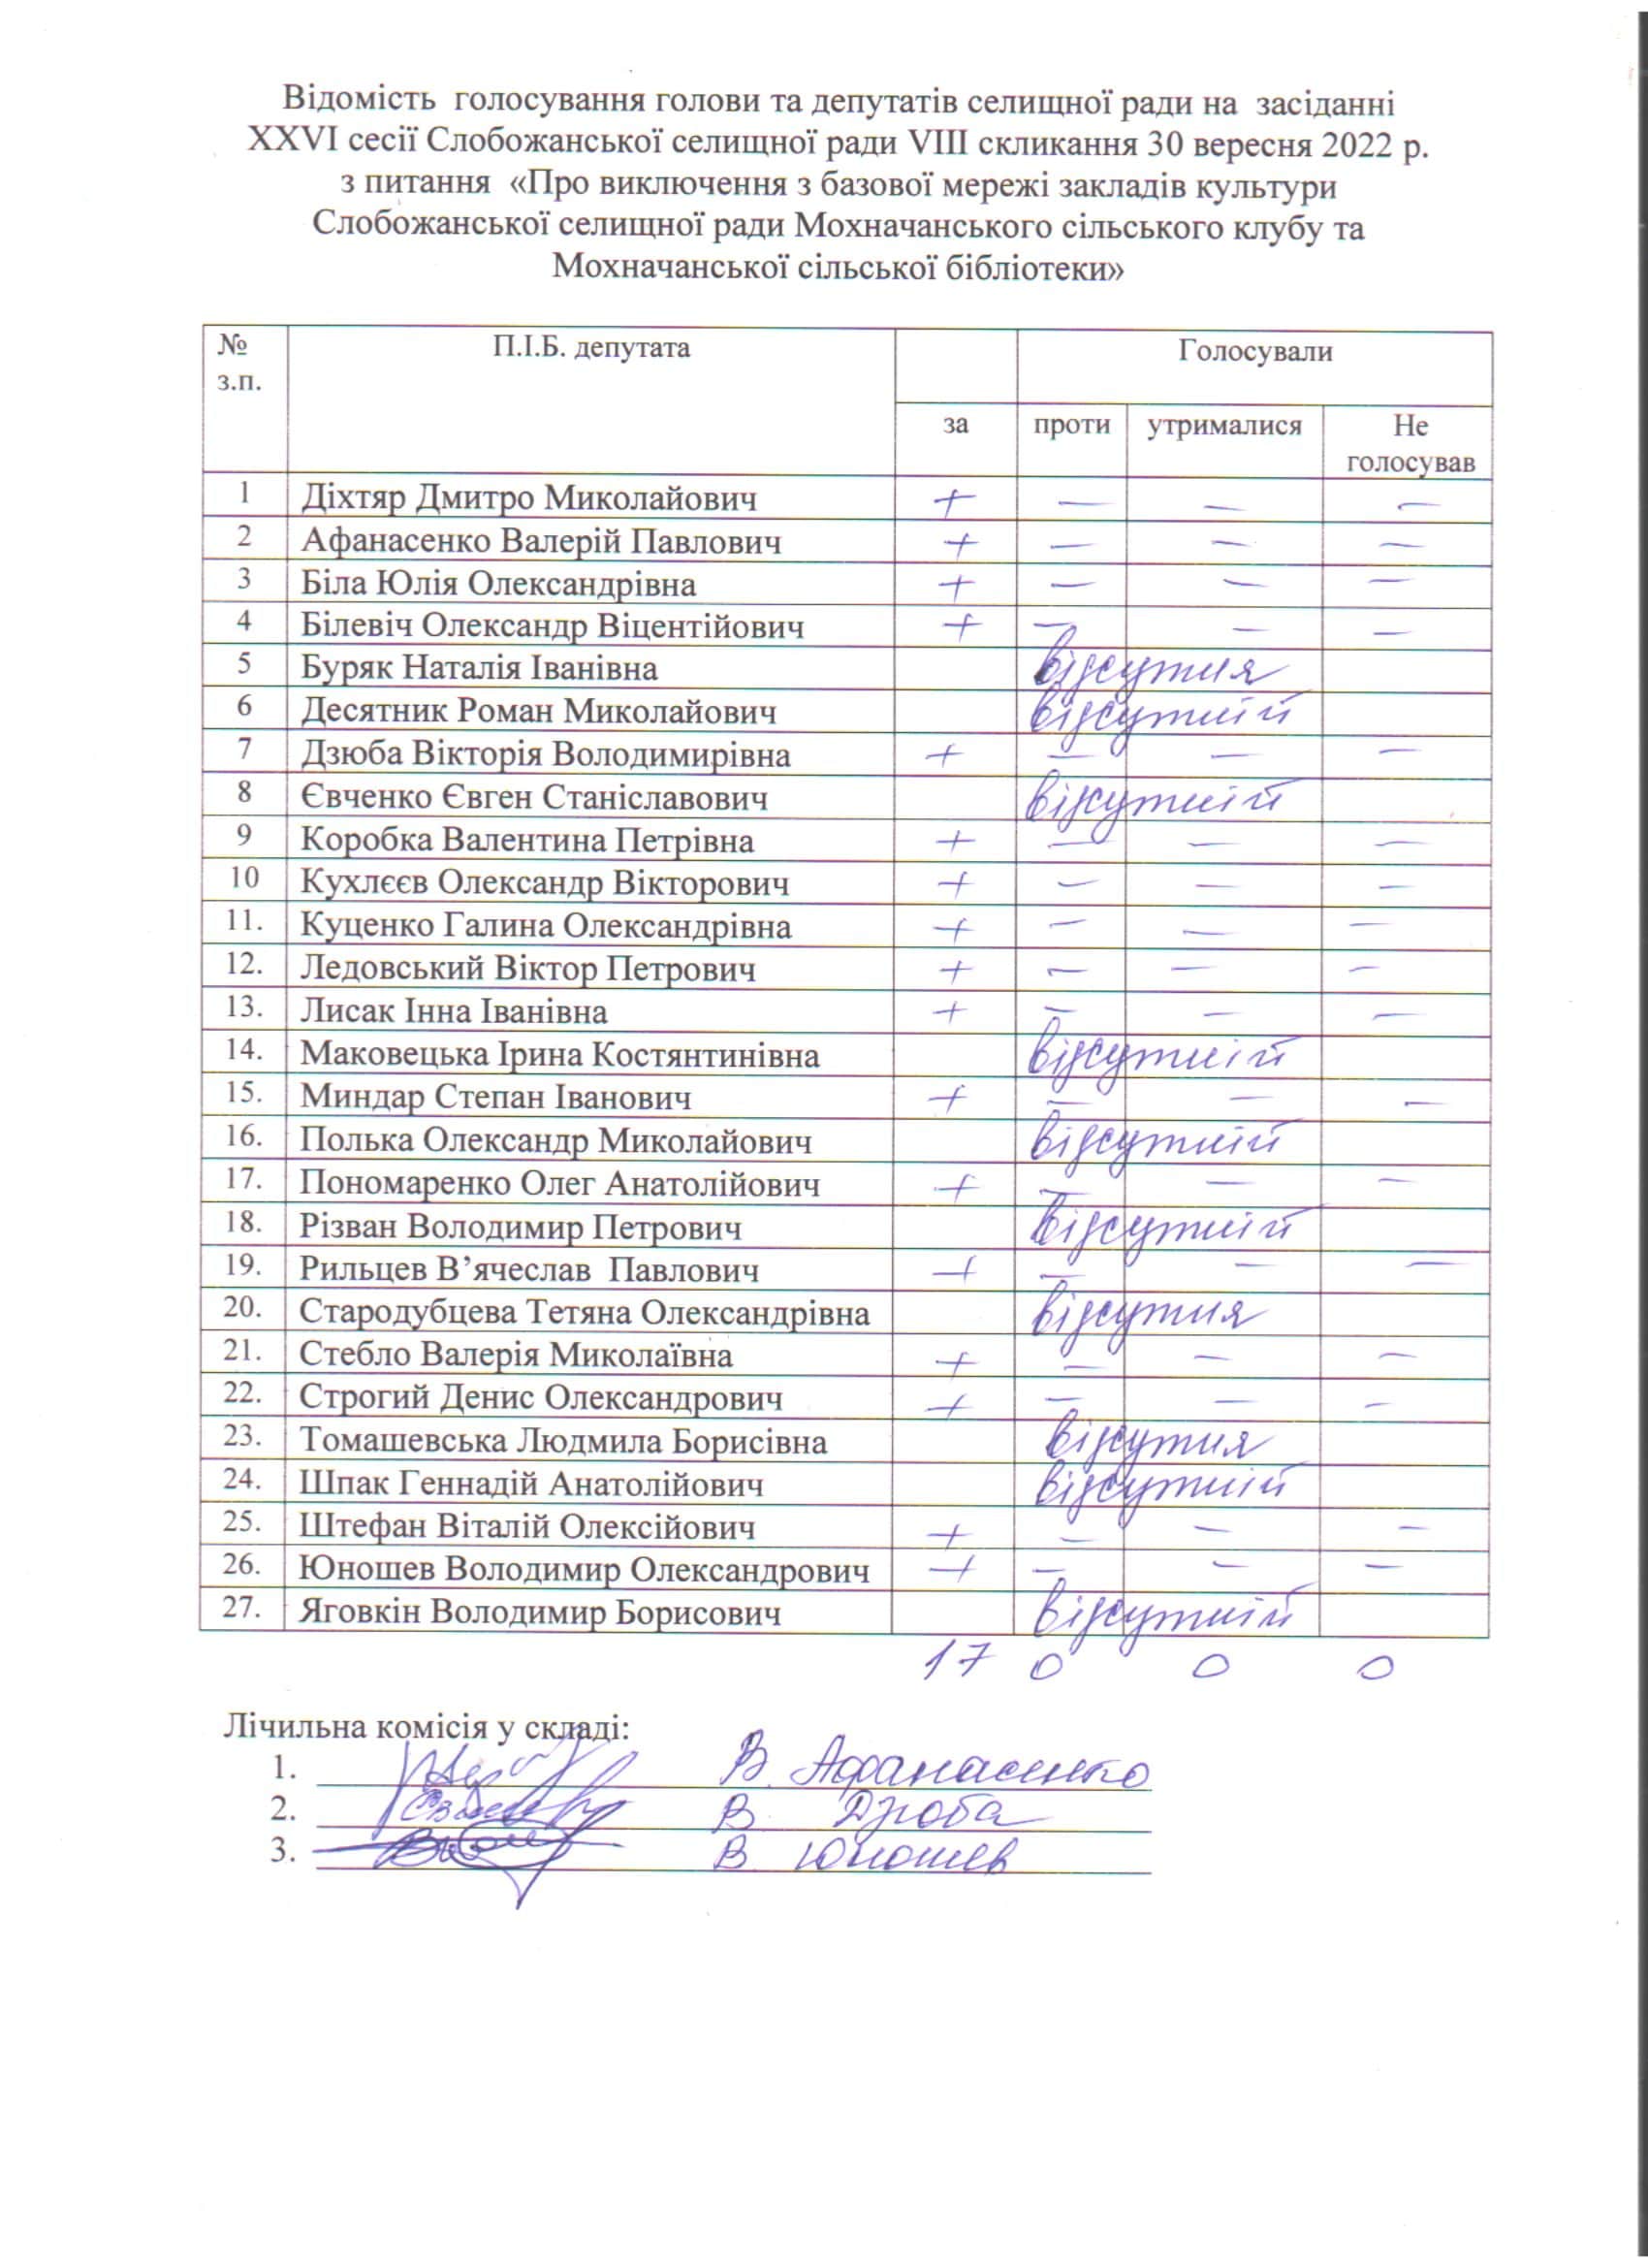 Відомість голосування голови та депутатів селищної ради на засіданні
XXVI сесії Слобожанської селищної ради VIII скликання 30 вересня 2022 р.
з питання «Про виключення з базової мережі закладів культури
Слобожанської селищної ради Мохначанського сільського клубу та
Мохначанської сільської бібліотеки»
№ з.п. П.І.Б. депутата Голосували
за проти утрималися Не голосував
1 Діхтяр Дмитро Миколайович + — — —
2 Афанасенко Валерій Павлович + — — —
3 Біла Юлія Олександрівна + — — —
4 Білевіч Олександр Віцентійович + — — —
5 Буряк Наталія Іванівна відсутня
6 Десятник Роман Миколайович відсутній
7 Дзюба Вікторія Володимирівна + — — —
8 Євченко Євген Станіславович відсутній
9 Коробка Валентина Петрівна + — — —
10 Кухлєєв Олександр Вікторович + — — —
11. Куценко Галина Олександрівна + — — —
12. Ледовський Віктор Петрович + — — —
13. Лисак Інна Іванівна + — — —
14. Маковецька Ірина Костянтинівна відсутній
15. Миндар Степан Іванович + — — —
16. Полька Олександр Миколайович відсутній
17. Пономаренко Олег Анатолійович + — — —
18. Різван Володимир Петрович відсутній
19. Рильцев В’ячеслав Павлович + — — —
20. Стародубцева Тетяна Олександрівна відсутня
21. Стебло Валерія Миколаївна + — — —
22. Строгий Денис Олександрович + — — —
23. Томашевська Людмила Борисівна відсутня
24. Шпак Геннадій Анатолійович відсутній
25. Штефан Віталій Олексійович + — — —
26. Юношев Володимир Олександрович + — — —
27. Яговкін Володимир Борисович відсутній
17 0 0 0
Лічильна комісія у складі:
1. В. Афанасенко
2. В Дзюба
3. В. Юношев